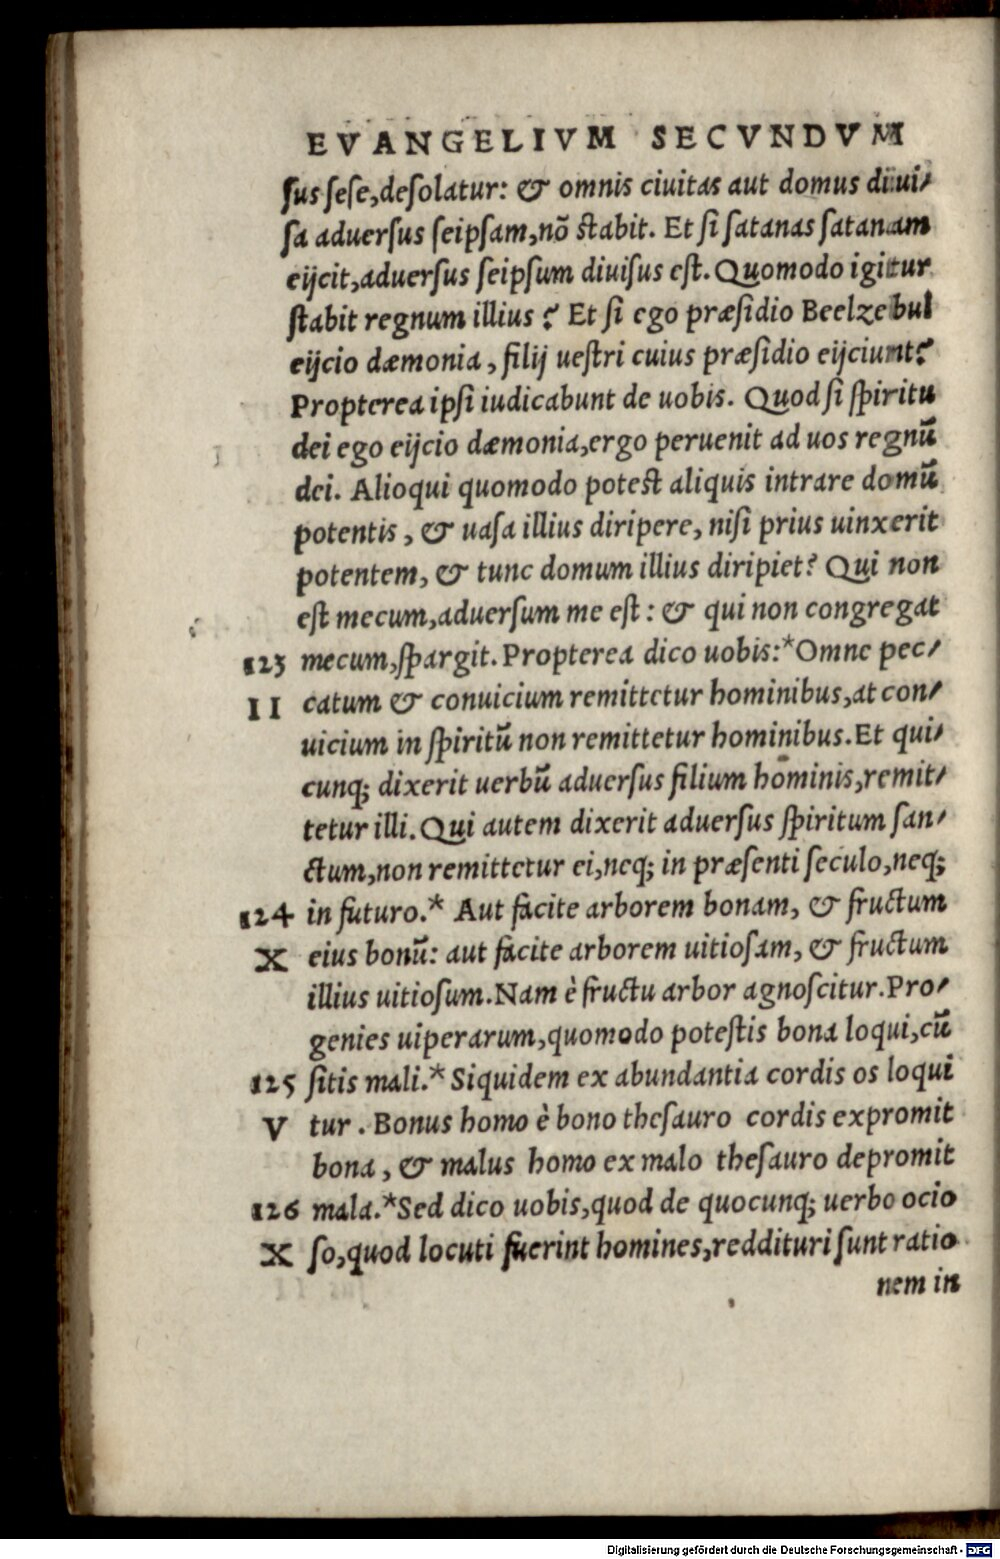 EVANGELIVM SECVNDVM
sus sese, desolatur: & omnis ciuitas aut domus diui/
sa aduersus seipsam, nõ stabit. Et si satanas satanam
eijcit, aduersus seipsum diuisus est. Quomodo igitur
stabit regnum illius? Et si ego præsidio Beelzebul
eijcio dæmonia, filij uestri cuius præsidio eijciunt?
Propterea ipsi iudicabunt de uobis. Quod si spiritu
dei ego eijcio dæmonia, ergo peruenit ad uos regnũ
dei. Alioqui quomodo potest aliquis intrare domũ
potentis, & uasa illius diripere, nisi prius uinxerit
potentem, & tunc domum illius diripiet? Qui non
est mecum, aduersum me est: & qui non congregat
123 mecum, spargit. Propterea dico uobis:*Omne pec/
II catum & conuicium remittetur hominibus, at con/
uicium in spiritũ non remittetur hominibus. Et qui/
cunq; dixerit uerbũ aduersus filium hominis, remit/
tetur illi. Qui autem dixerit aduersus spiritum san/
ctum, non remittetur ei, neq; in præsenti seculo, neq;
124 in futuro.* Aut facite arborem bonam, & fructum
X eius bonũ: aut facite arborem uitiosam, & fructum
illius uitiosum. Nam è fructu arbor agnoscitur. Pro/
genies uiperarum, quomodo potestis bona loqui, cũ
125 sitis mali.* Siquidem ex abundantia cordis os loqui
V tur. Bonus homo è bono thesauro cordis expromit
bona, & malus homo ex malo thesauro depromit
126 mala.*Sed dico uobis, quod de quocunq; uerbo ocio
X so, quod locuti fuerint homines, reddituri sunt ratio
nem in
Digitalisierung gefördert durch die Deutsche Forschungsgemeinschaft - DFG